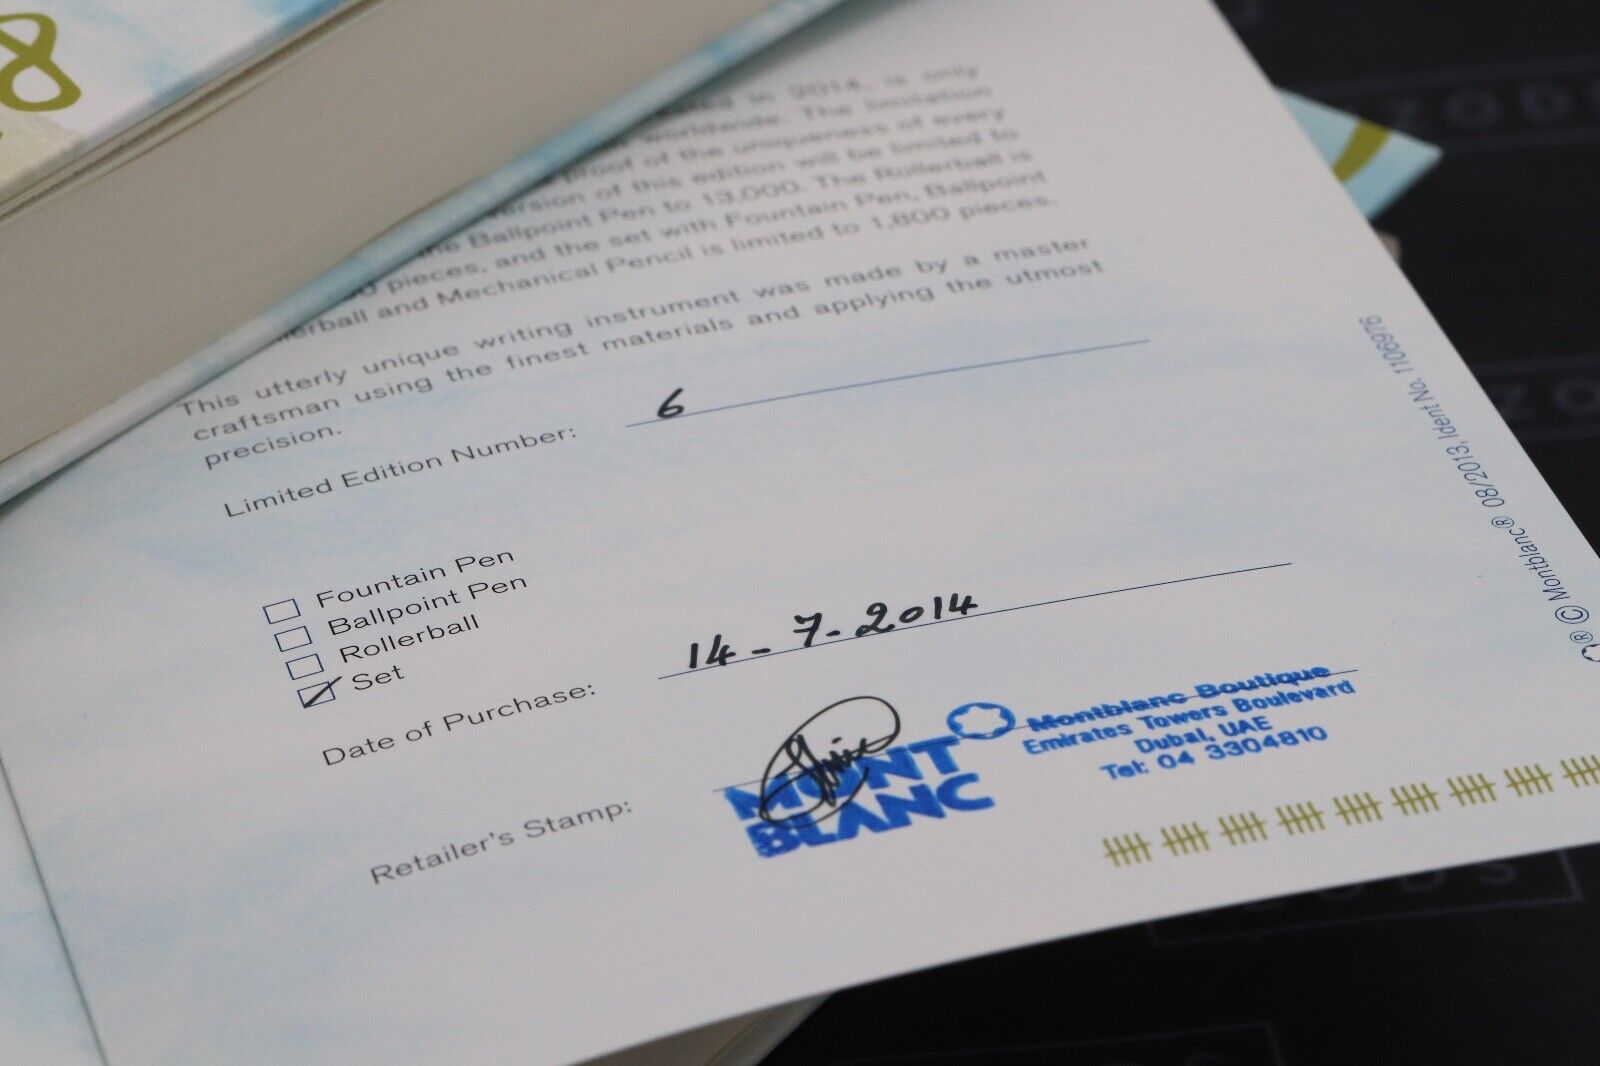 8
in 2014, is only
worldwide. The limitation
proof of the uniqueness of every
version of this edition will be limited to
the Ballpoint Pen to 13,000. The Rollerball is
pieces, and the set with Fountain Pen, Ballpoint
and Mechanical Pencil is limited to 1,800 pieces.
This utterly unique writing instrument was made by a master
craftsman using the finest materials and applying the utmost
precision.
Limited Edition Number: 6
Fountain Pen
Ballpoint Pen
Rollerball
Set
Date of Purchase: 14-7-2014
Retailer's Stamp:
MONT
BLANC
Montblanc Boutique
Emirates Towers Boulevard
Dubai, UAE
Tel: 04 3304810
® © Montblanc® 08/2013, Ident No. 1106976
ZODS